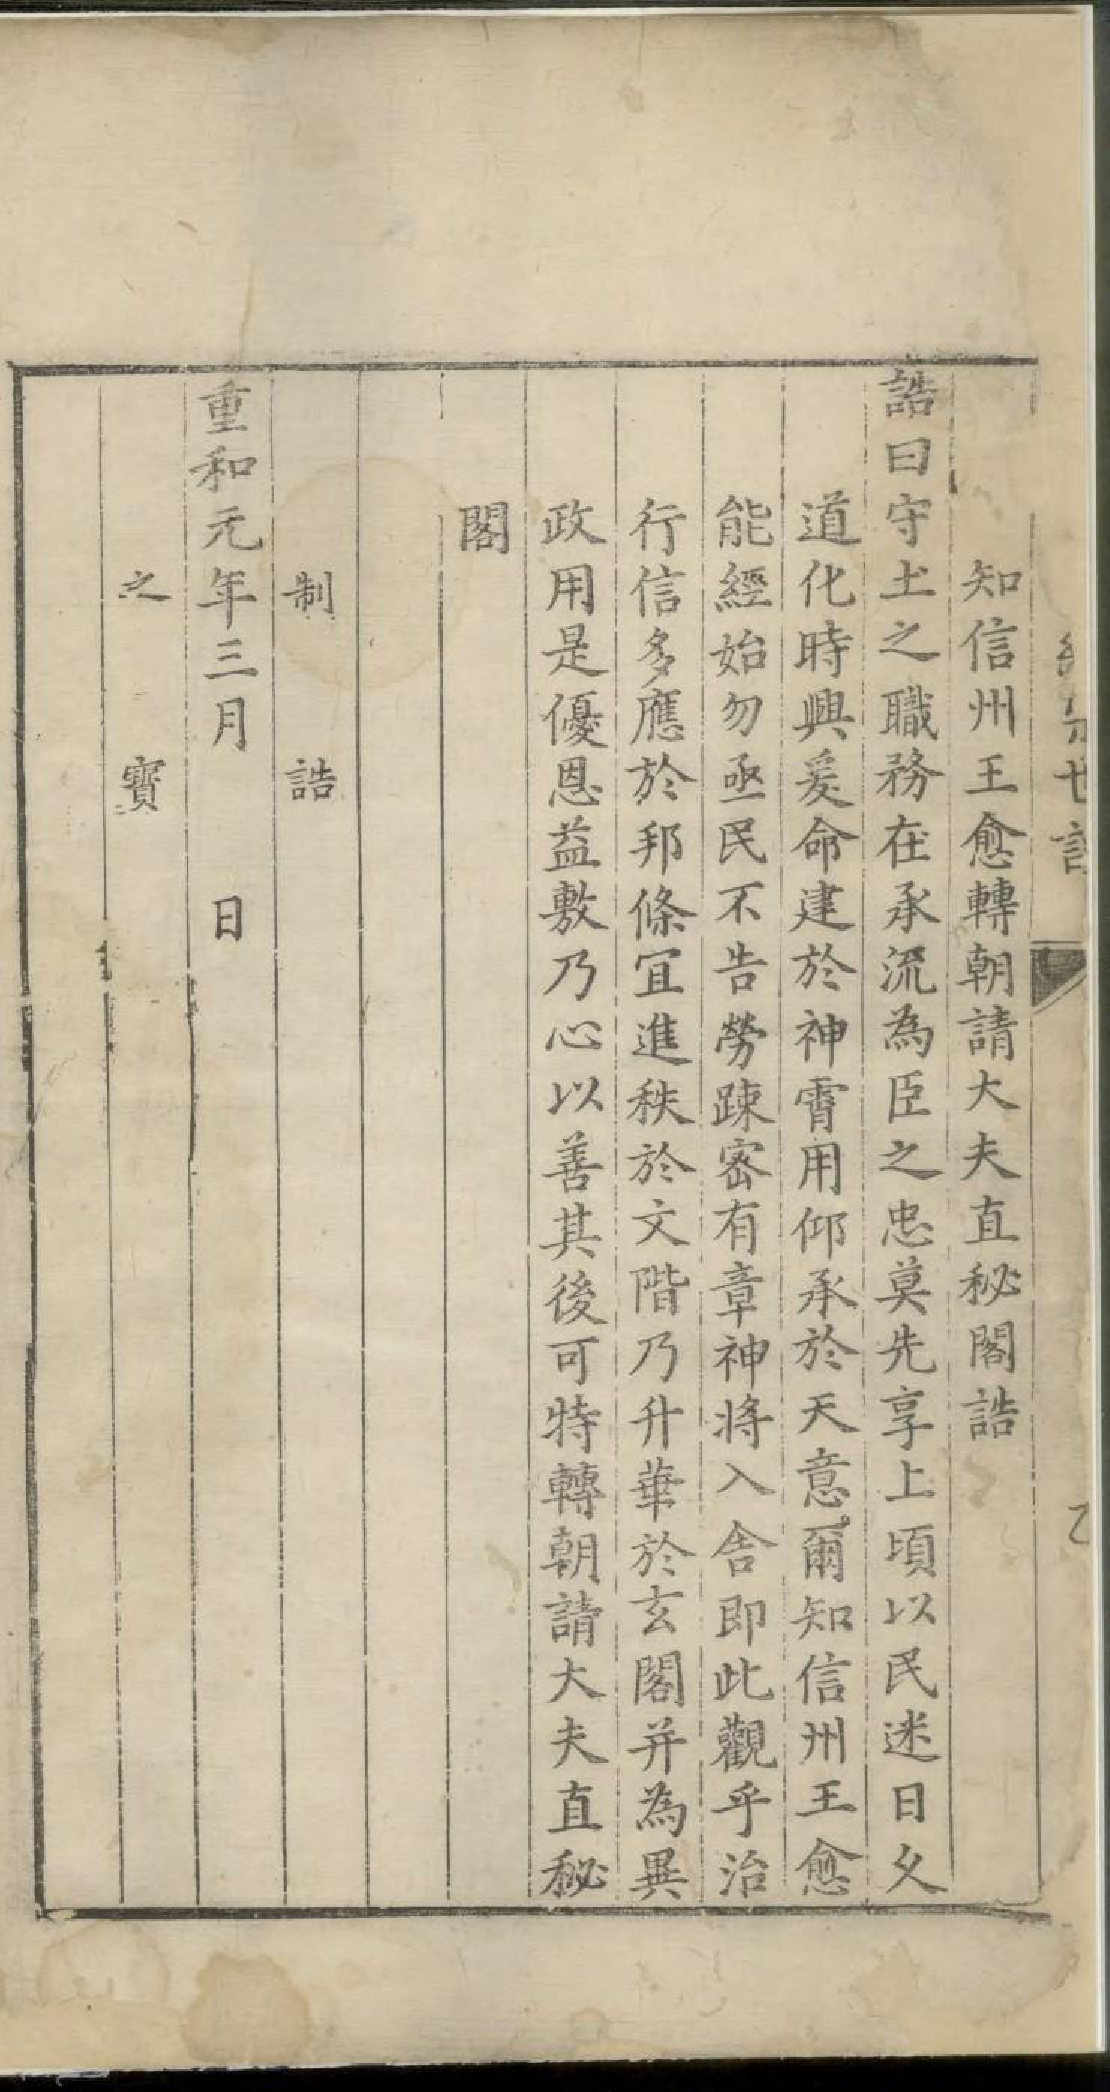 世
知信州王愈轉朝請大夫直秘閣誥
誥曰守土之職務在承流為臣之忠莫先享上頃以民迷日久
道化時興爰命建於神霄用仰承於天意爾知信州王愈
能經始勿亟民不告勞踈密有章神將入舍即此觀乎治
行信多應於邦條宜進秩於文階乃升華於玄閣并為異
政用是優恩益敷乃心以善其後可特轉朝請大夫直秘
閣
制誥
重和元年三月　日
之寶